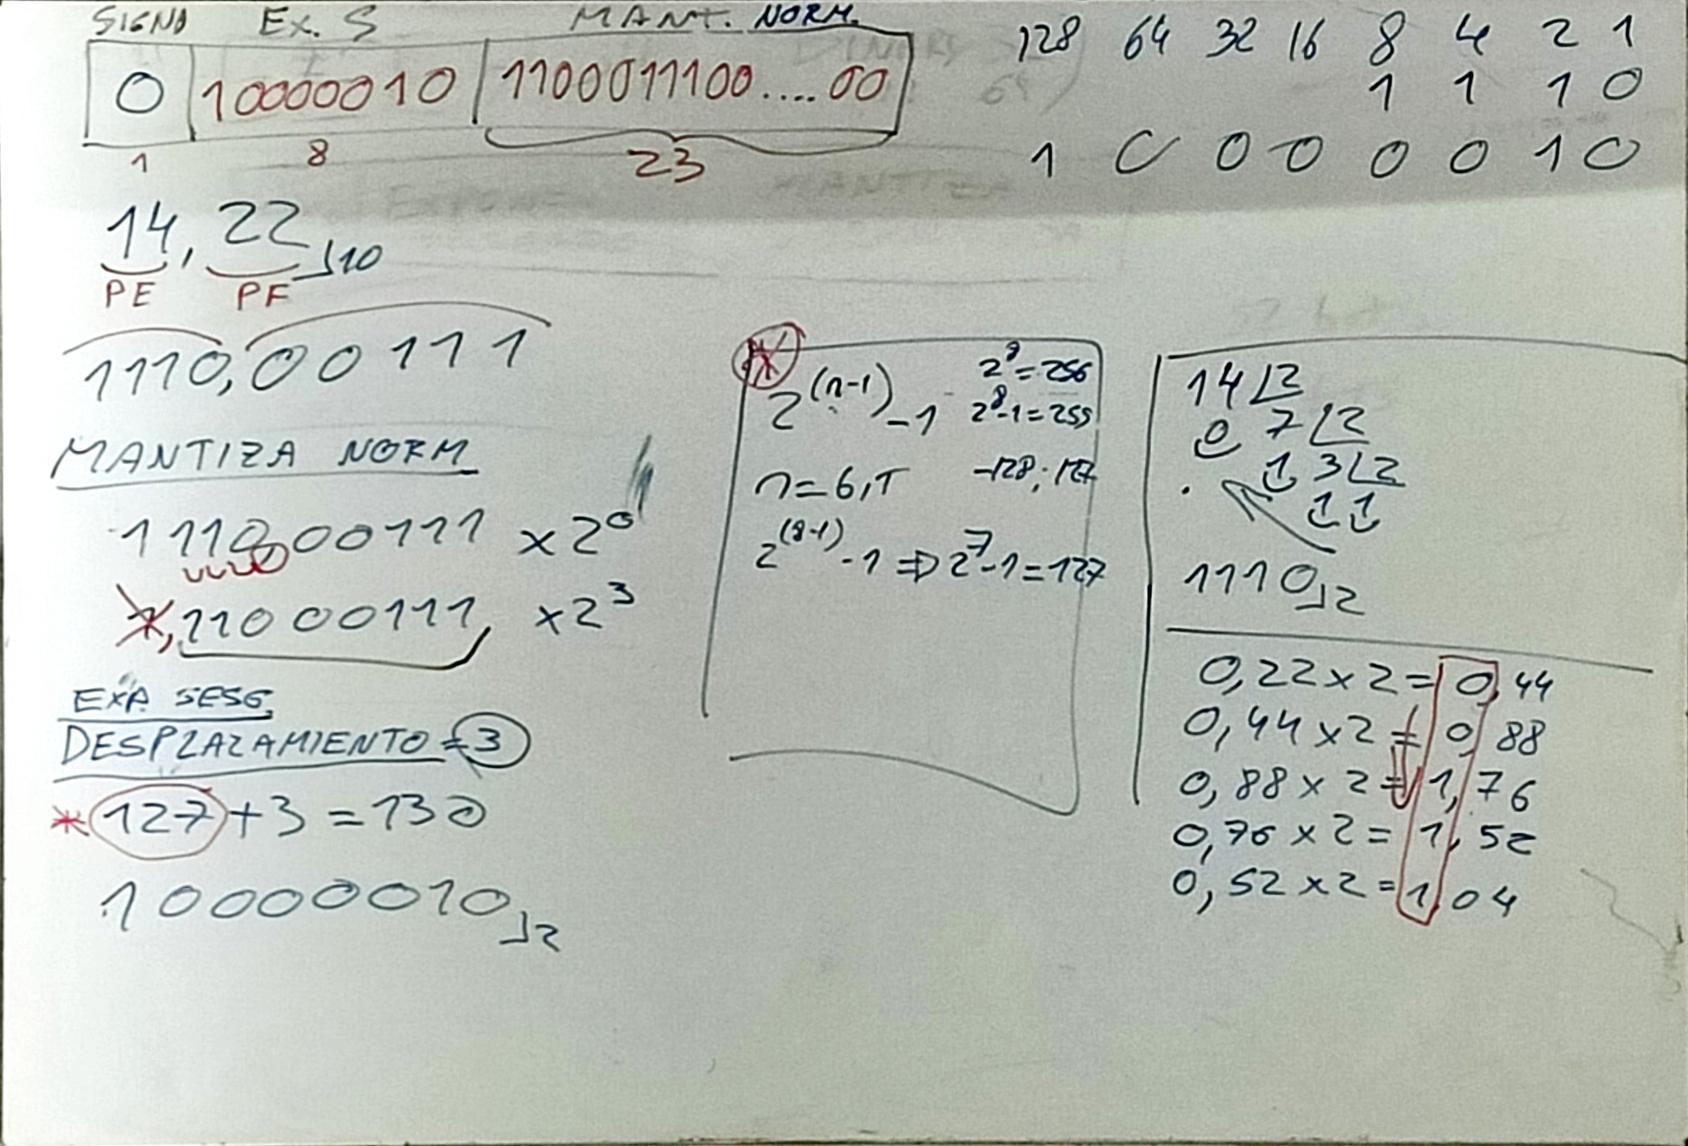 SIGNO Ex. S MANT. NORM.
0 10000010 1100011100....00
1 8 23
128 64 32 16 8 4 2 1
1 1 1 0
1 0 0 0 0 0 1 0
14,22 10
PE PF
1110,00111
MANTIZA NORM
1110,00111 x2^0
1,11000111, x2^3
EXP. SESG.
DESPLAZAMIENTO = 3
* 127 + 3 = 130
10000010 2
*
2^(n-1) - 1
2^8 = 256
2^8 - 1 = 255
-128; 127
2^(8-1) - 1 => 2^7 - 1 = 127
14 2
0 7 2
1 3 2
1 1
1110 2
0,22 x 2 = 0,44
0,44 x 2 = 0,88
0,88 x 2 = 1,76
0,76 x 2 = 1,52
0,52 x 2 = 1,04